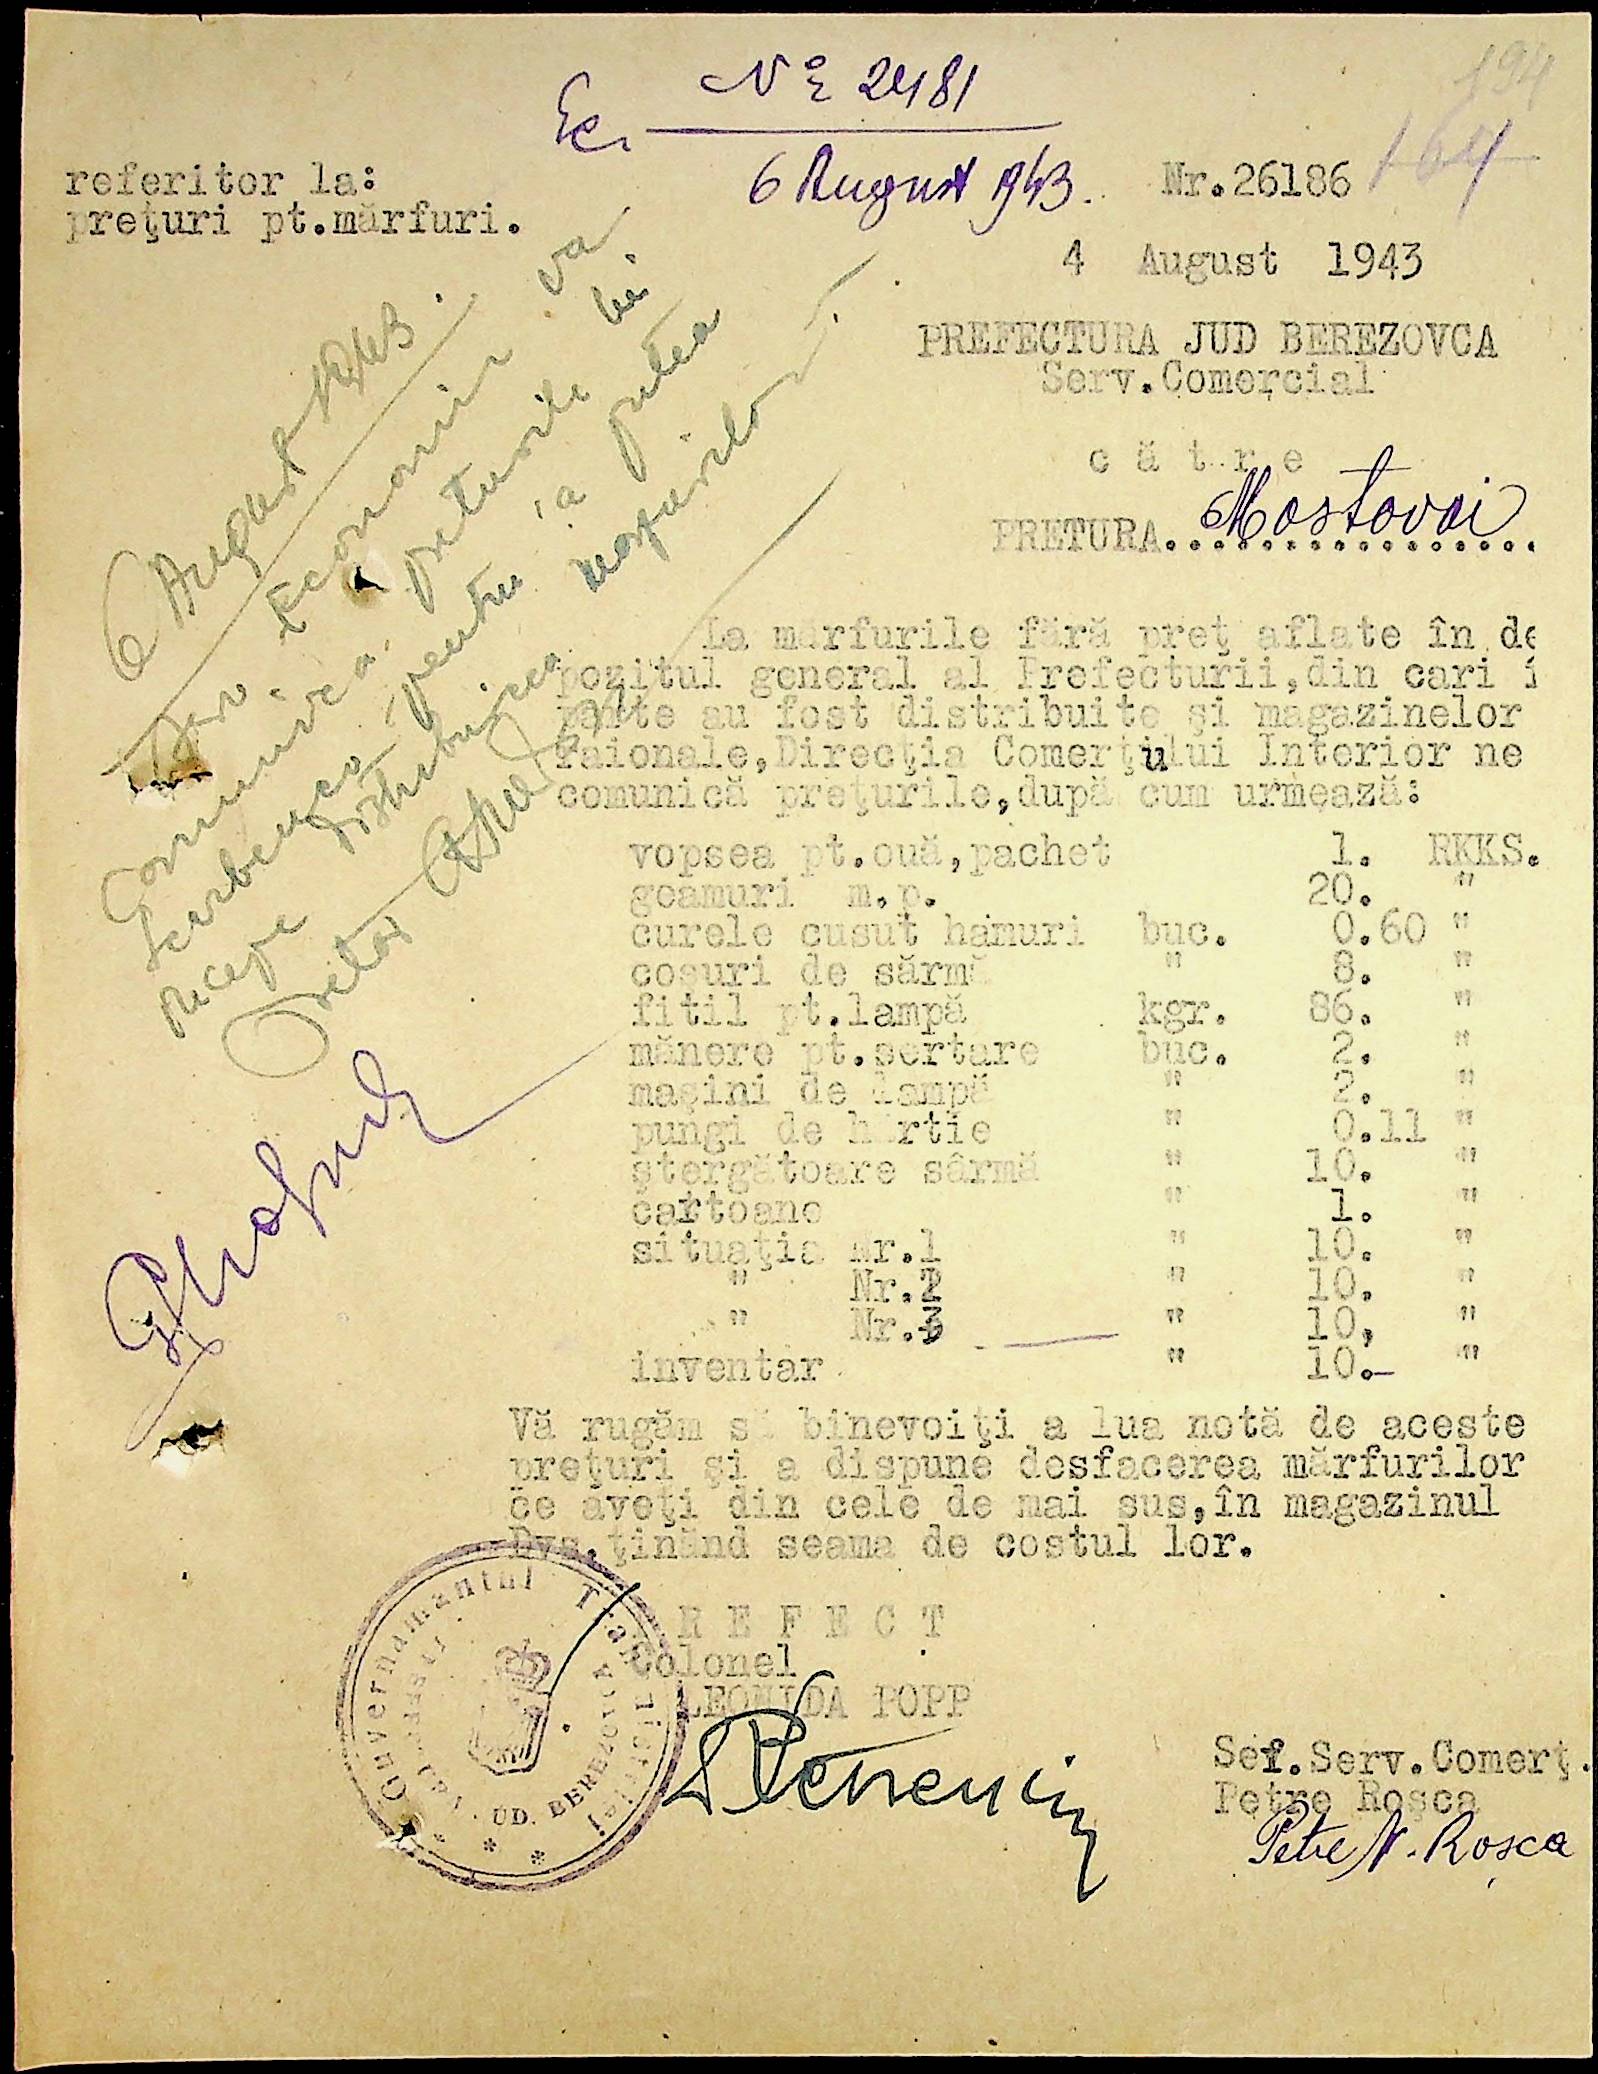 194
Ec. № 2481
6 August 943.
164
referitor la:
preţuri pt.mărfuri.
Nr.26186
4 August 1943
PREFECTURA JUD BEREZOVCA
Serv.Comercial
c ă t r e
PRETURA Mostovoi
6 August 1943.
Serv. Economic va
Comunica preturile lui
pentru a putea
incepe distribuirea marfurilor.
Pretor
La mărfurile fără preţ aflate în de
pozitul general al Prefecturii,din cari î
parte au fost distribuite şi magazinelor
raionale,Direcţia Comerţului Interior ne
comunică preţurile,după cum urmează:
vopsea pt.ouă,pachet 1. RKKS.
geamuri m.p. 20. "
curele cusut hamuri buc. 0.60 "
coşuri de sărmă " 8. "
fitil pt.lampă kgr. 86. "
mănere pt.sertare buc. 2. "
maşini de lampă " 2. "
pungi de hîrtie " 0.11 "
ştergătoare sârmă " 10. "
cartoane " 1. "
situaţia Nr.1 " 10. "
" Nr.2 " 10. "
" Nr.3 " 10, "
inventar " 10.- "
Vă rugăm să binevoiţi a lua notă de aceste
preţuri şi a dispune desfacerea mărfurilor
ce aveţi din cele de mai sus,în magazinul
Dvs.ţinând seama de costul lor.
P R E F E C T
Colonel
LEONIDA POPP
Guvernamantul Transnistriei
JUD. BEREZOVCA
Sef.Serv.Comerţ.
Petre Roşca
Petre N. Roşca